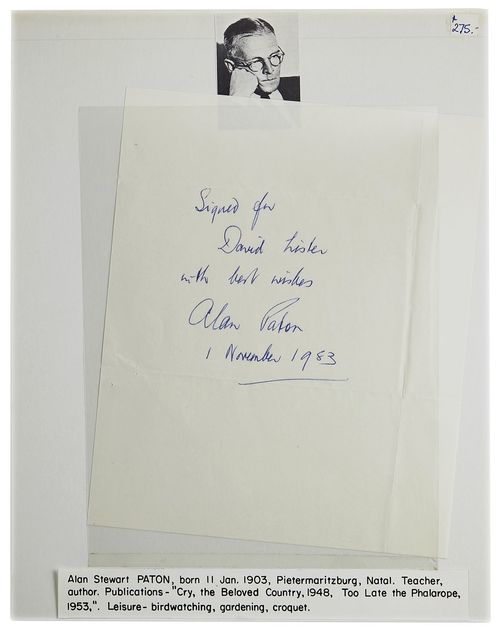 275.-
Signed for
David Lister
with best wishes
Alan Paton
1 November 1983
Alan Stewart PATON, born 11 Jan. 1903, Pietermaritzburg, Natal. Teacher,
author. Publications-"Cry, the Beloved Country,1948, Too Late the Phalarope,
1953,". Leisure- birdwatching, gardening, croquet.